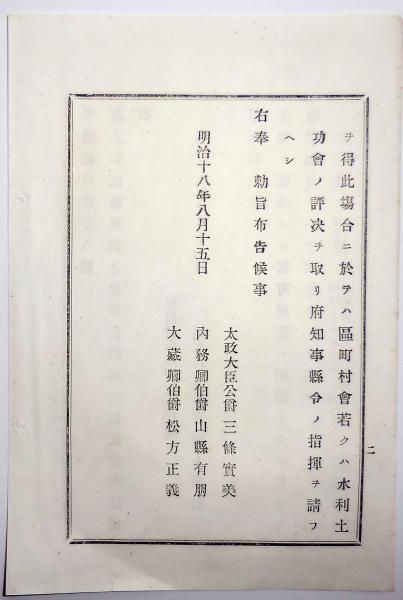 ヲ得此塲合ニ於テハ區町村會若クハ水利土
功會ノ評决ヲ取リ府知事縣令ノ指揮ヲ請フ
ヘシ
右奉　勅旨布告候事
明治十八年八月十五日
太政大臣公爵三條實美
內務卿伯爵山縣有朋
大藏卿伯爵松方正義
二